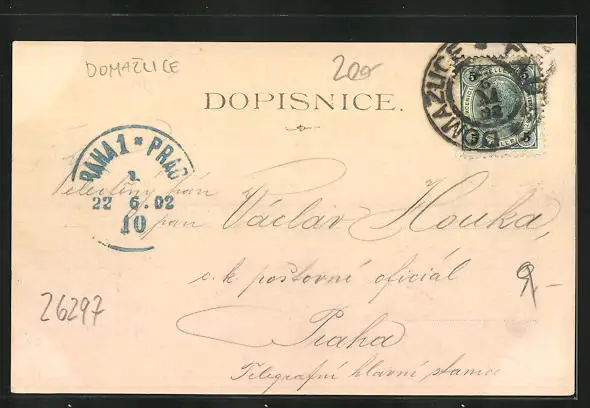 DOMAŽLICE
200
DOPISNICE.
DOMAZLICE
5 5
PRAHA 1 * PRAG
22 6. 02
10
pán
pan Václav Houka,
c. k. poštovní oficiál
9,-
Praha
26297
Telegrafní hlavní stanice